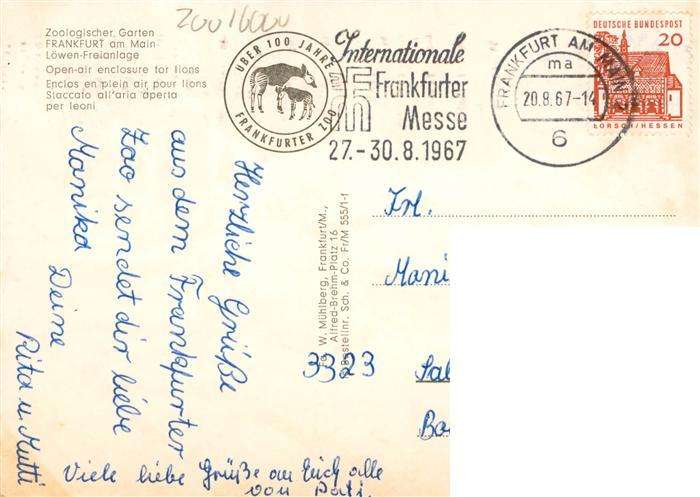 Zoo 16000
Zoologischer Garten
FRANKFURT am Main
Löwen-Freianlage
Open-air enclosure for lions
Enclos en plein air pour lions
Staccato all'aria aperta
per leoni
ÜBER 100 JAHRE
FRANKFURTER ZOO
Internationale
Frankfurter
Messe
27.-30.8.1967
FRANKFURT AM MAIN
ma
20.8.67-14
6
DEUTSCHE BUNDESPOST
20
LORSCH/HESSEN
Herzliche Grüße
aus dem Frankfurter
Zoo sendet dir liebe
Monika Deine
Rita u. Mutti
Viele liebe Grüße an Euch alle
von Pati.
W. Mühlberg, Frankfurt/M.,
Alfred-Brehm-Platz 16
Bestellnr. Sch. & Co. Fr/M 555/1-1
Frl.
Moni
3323 Sal
Ba